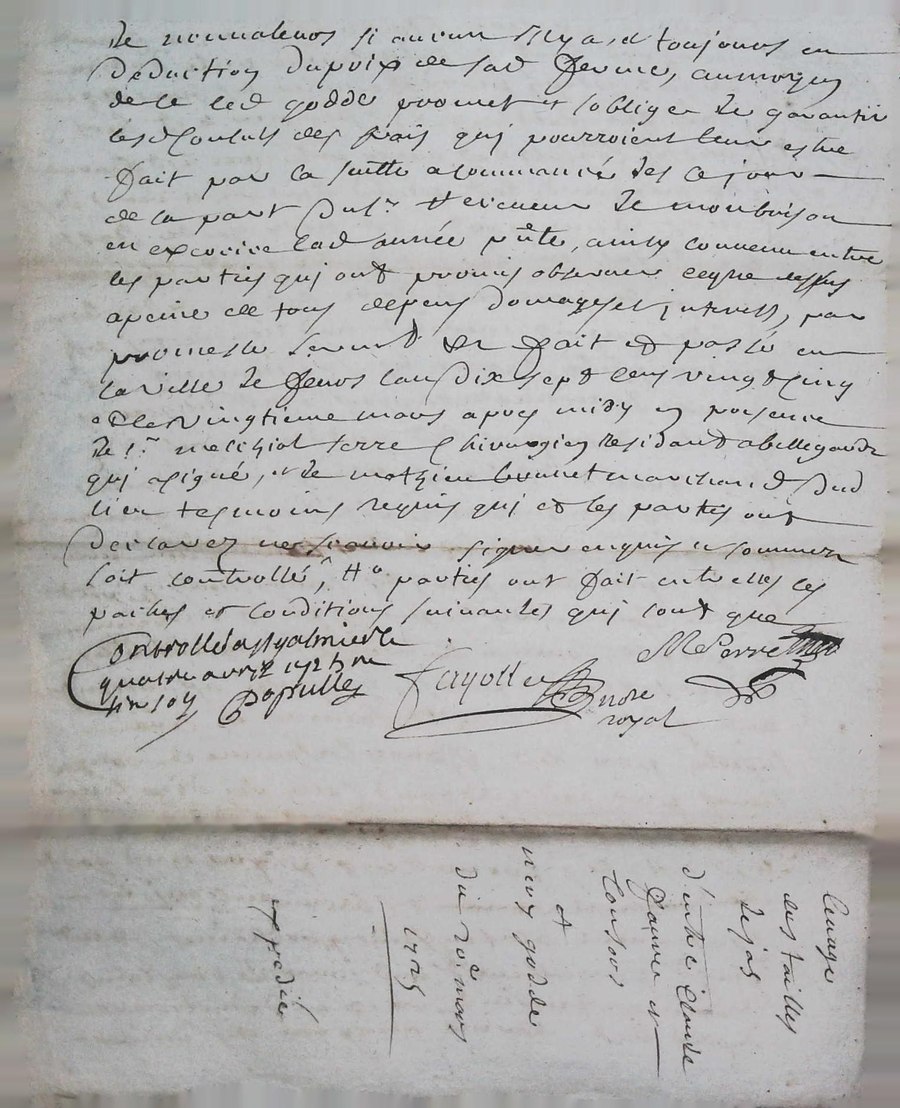 de nouvaleurs si aucun Il y a, et toujours en
deduction du prix de sad ferme, au moyen
de ce led godde promet et soblige de garantir
lesd Consuls des frais qui pourroient leur estre
fait par la suitte a commancer des ce jour
de la part du Sr de monboison
en exercice lad année pñte, ainsy convenu entre
les parties qui ont promis observer ce que dessus
a peine de tous depens domages et interests, par
promesse serment &c fait et passé en
la ville de feurs lan dix sept cens vingt cinq
et le vingtieme mars apres midy en presence
de Sr melchiol Perre Chirurgien residant a bellegarde
qui a signé, et de mathieu bonnet marchand dud
lieu tesmoins requis qui et les parties ont
declarez ne scavoir signer enquis et sommez
soit controllé, parties ont fait entrelles les
paches et conditions suivantes qui sont que
Controllé a St galmier le
quatre avril 1725 Re
MPerre
Fayolle
nore
royal
Levage
des tailles
de jas
d'entre Claude
faure et
Consors
et
godde
du 20e mars
1725
expedié